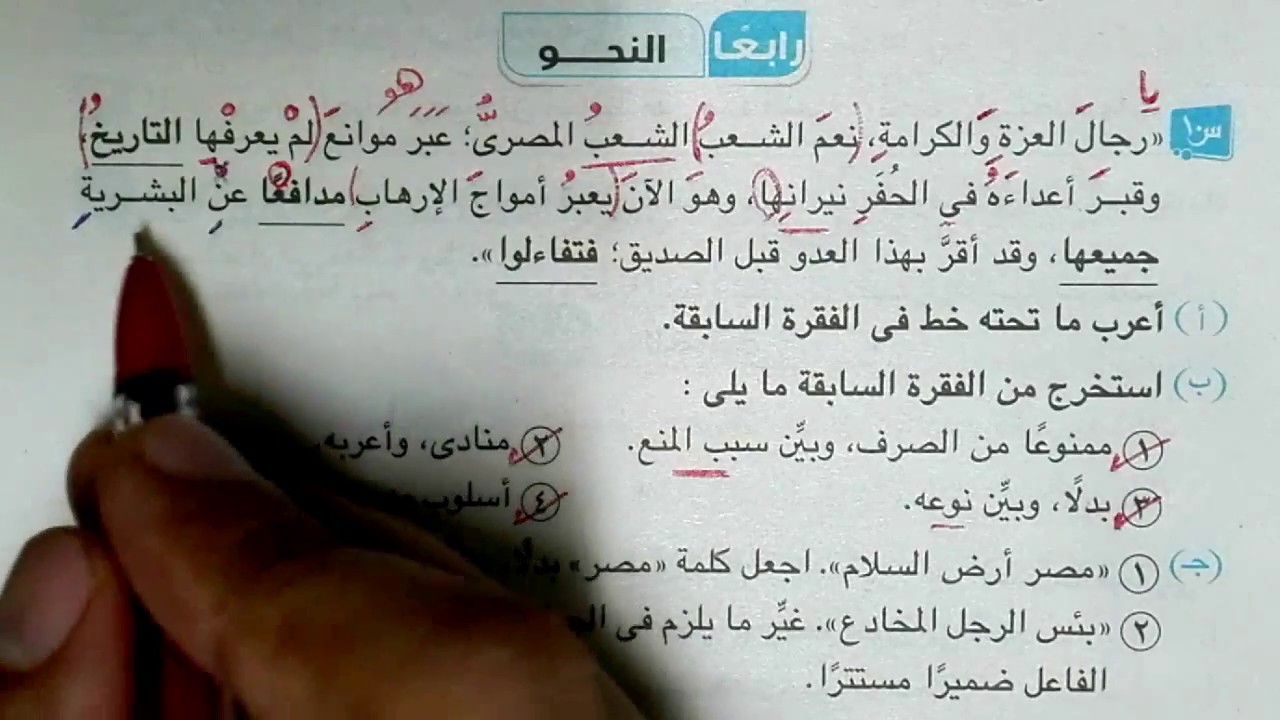 رابعًا النحو
يا
هو
س١ «رجالَ العزة وَالكرامةِ، نِعمَ الشعبُ الشعبُ المصرىُّ؛ عَبَرَ موانعَ لمْ يعرفْها التاريخُ،
وقبرَ أعداءَهُ في الحُفَرِ نيرانها، وهوَ الآنَ يعبرُ أمواجَ الإرهابِ مدافعًا عنِ البشريةِ
جميعها، وقد أقرَّ بهذا العدو قبل الصديق؛ فتفاءلوا».
(أ) أعرب ما تحته خط فى الفقرة السابقة.
(ب) استخرج من الفقرة السابقة ما يلى :
١ ممنوعًا من الصرف، وبيِّن سبب المنع. ٢ منادى، وأعربه.
٣ بدلًا، وبيِّن نوعه. ٤ أسلوب
(جـ) ١ «مصر أرض السلام». اجعل كلمة «مصر» بدلًا
٢ «بئس الرجل المخادع». غيِّر ما يلزم فى
الفاعل ضميرًا مستترًا.